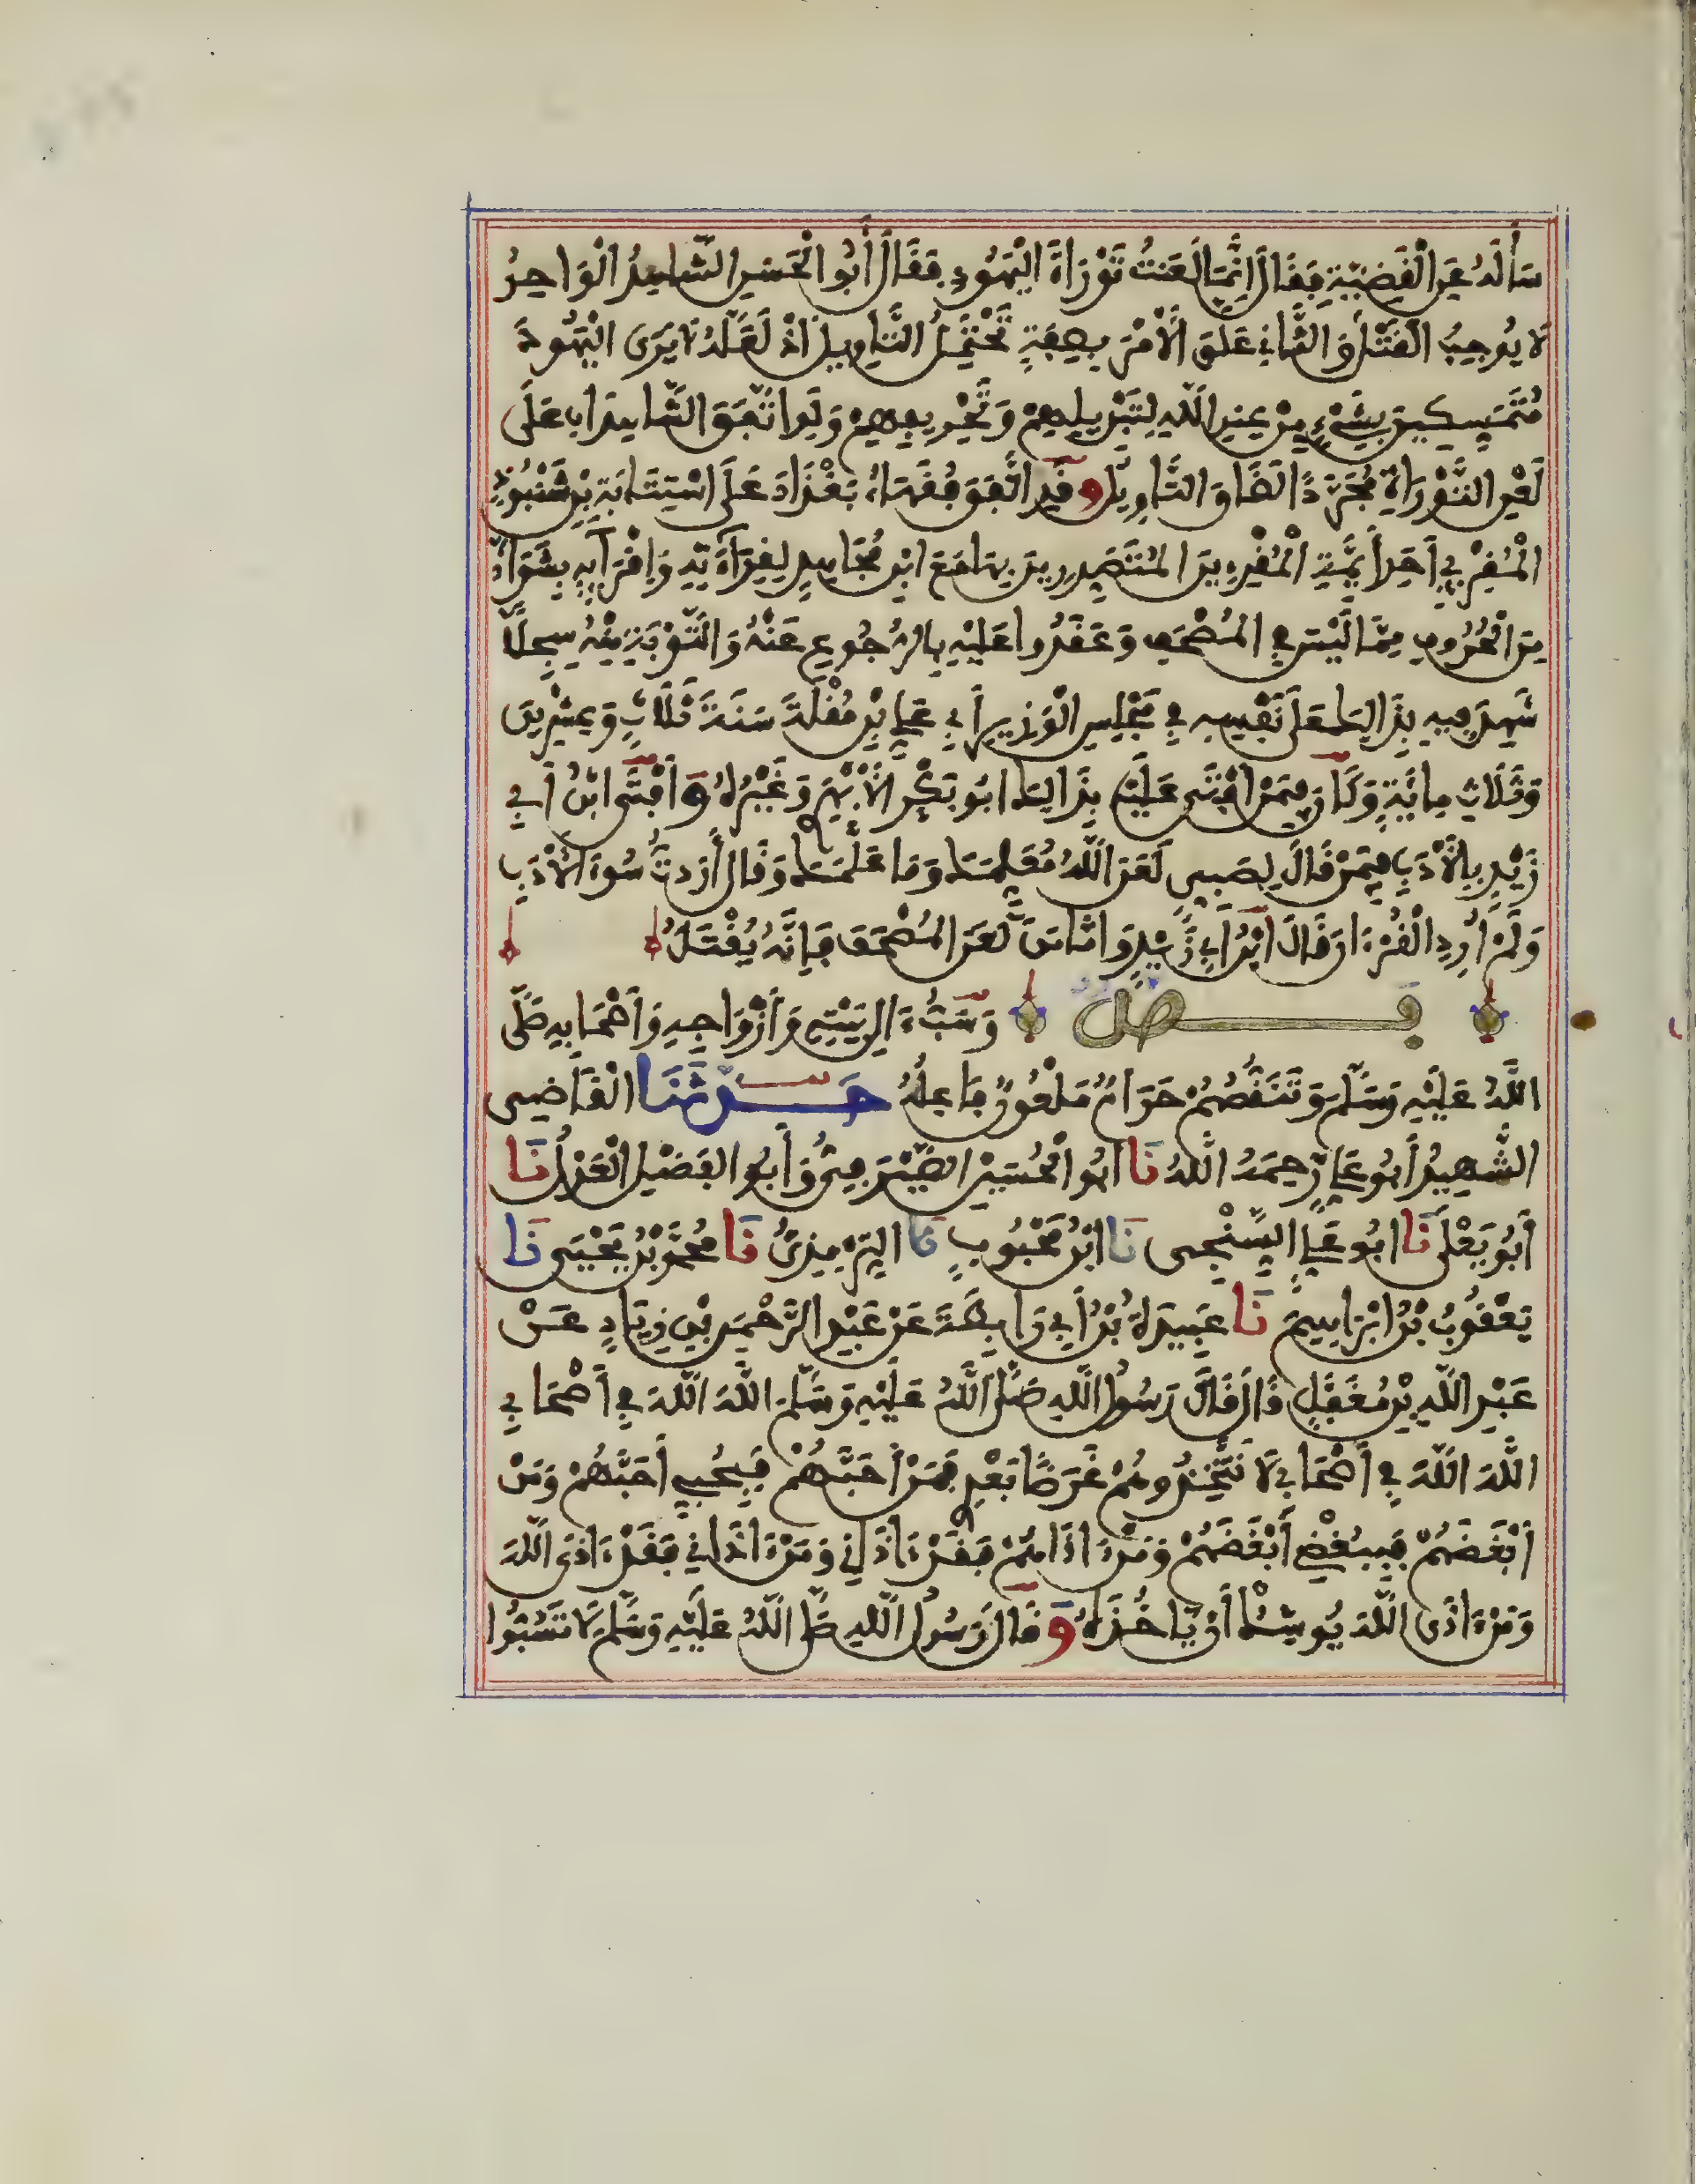 سَأَلَهُ عَنِ الْقَضِيَّةِ فَقَالَ إِنَّمَا لَعَنْتُ تَوْرَاةَ الْيَهُودِ فَقَالَ أَبُو الْحَسَنِ الشَّاهِدُ الْوَاحِدُ
لَا يُوجِبُ الْقَتْلَ وَالثَّانِي عَلَّقَ الْأَمْرَ بِصِفَةٍ تَحْتَمِلُ التَّاوِيلَ إِذْ لَعَلَّهُ لَا يَرَى الْيَهُودَ
مُتَمَسِّكِينَ بِشَيْءٍ مِنْ عِنْدِ اللَّهِ لِتَبْدِيلِهِمْ وَتَحْرِيفِهِمْ وَلَوِ اتَّفَقَ الشَّاهِدَانِ عَلَى
لَعْنِ التَّوْرَاةِ مُجَرَّدًا لَضَاقَ التَّاوِيلُ وَقَدِ اتَّفَقَ فُقَهَاءُ بَغْدَادَ عَلَى اسْتِتَابَةِ بْنِ شَنْبُوذَ
الْمُقْرِي أَحَدِ أَيِمَّةِ الْمُقْرِءِينَ الْمُتَصَدِّرِينَ بِهَا مَعَ ابْنِ مُجَاهِدٍ لِقِرَاءَتِهِ وَإِقْرَائِهِ بِشَوَاذَّ
مِنَ الْحُرُوفِ مِمَّا لَيْسَ فِي الْمُصْحَفِ وَعَقَدُوا عَلَيْهِ بِالرُّجُوعِ عَنْهُ وَالتَّوْبَةِ مِنْهُ سِجِلًّا
شَهِدَ فِيهِ بِذَالِكَ عَلَى نَفْسِهِ فِي مَجْلِسِ الْوَزِيرِ أَبِي عَلِيِّ بْنِ مُقْلَةَ سَنَةَ ثَلَاثٍ وَعِشْرِينَ
وَثَلَاثِ مِائَةٍ وَكَانَ فِيمَنْ أَفْتَى عَلَيْهِ بِذَالِكَ أَبُو بَكْرٍ الْأَبْهَرِيُّ وَغَيْرُهُ وَأَفْتَى ابْنُ أَبِي
زَيْدٍ بِالْأَدَبِ فِيمَنْ قَالَ لِصَبِيٍّ لَعَنَ اللَّهُ مُعَلِّمَكَ وَمَا عَلَّمَكَ وَقَالَ أَرَدتُّ سُوءَ الْأَدَبِ
وَلَمْ أُرِدِ الْقُرْءَانَ قَالَ ابْنُ أَبِي زَيْدٍ وَأَمَّا مَنْ لَعَنَ الْمُصْحَفَ فَإِنَّهُ يُقْتَلُ
فصل وَسَبُّ ءَالِ بَيْتِهِ وَأَزْوَاجِهِ وَأَصْحَابِهِ صَلَّى
اللَّهُ عَلَيْهِ وَسَلَّمَ وَتَنَقُّصُهُمْ حَرَامٌ مَلْعُونٌ فَاعِلُهُ حَدَّثَنَا الْقَاضِي
الشَّهِيدُ أَبُو عَلِيٍّ رَحِمَهُ اللَّهُ نَا أَبُو الْحُسَيْنِ الصَّيْرَفِيُّ وَأَبُو الْفَضْلِ الْعَدْلُ نَا
أَبُو يَعْلَى نَا أَبُو عَلِيٍّ السِّنْجِي نَا ابْنُ مَحْبُوبٍ نَا التِّرْمِذِيُّ نَا مُحَمَّدُ بْنُ يَحْيَى نَا
يَعْقُوبُ بْنُ إِبْرَاهِيمَ نَا عَبِيدَةُ بْنُ أَبِي رَابِطَةَ عَنْ عَبْدِ الرَّحْمَنِ بْنِ زِيَادٍ عَنْ
عَبْدِ اللَّهِ بْنِ مُغَفَّلٍ قَالَ قَالَ رَسُولُ اللَّهِ صَلَّى اللَّهُ عَلَيْهِ وَسَلَّمَ اللَّهَ اللَّهَ فِي أَصْحَابِي
اللَّهَ اللَّهَ فِي أَصْحَابِي لَا تَتَّخِذُوهُمْ غَرَضًا بَعْدِي فَمَنْ أَحَبَّهُمْ فَبِحُبِّي أَحَبَّهُمْ وَمَنْ
أَبْغَضَهُمْ فَبِبُغْضِي أَبْغَضَهُمْ وَمَنْ ءَاذَاهُمْ فَقَدْ ءَاذَانِي وَمَنْ ءَاذَانِي فَقَدْ ءَاذَى اللَّهَ
وَمَنْ ءَاذَى اللَّهَ يُوشِكُ أَنْ يَاخُذَهُ وَقَالَ رَسُولُ اللَّهِ صَلَّى اللَّهُ عَلَيْهِ وَسَلَّمَ لَا تَسُبُّوا